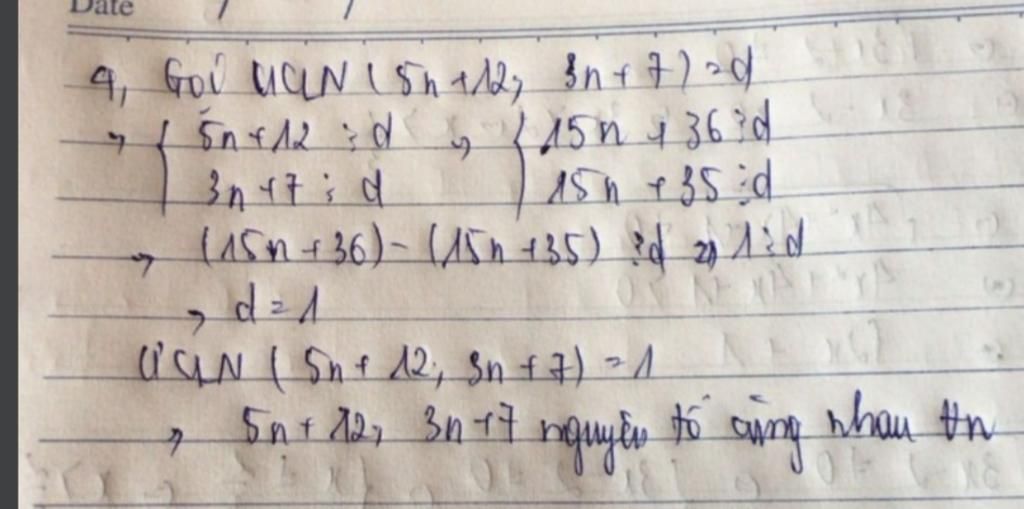 Date / /
4, Gọi ƯCLN (5n+12; 3n+7) = d
→ { 5n+12 ⋮ d → { 15n + 36 ⋮ d
3n+7 ⋮ d 15n + 35 ⋮ d
→ (15n+36) - (15n+35) ⋮ d => 1 ⋮ d
→ d = 1
ƯCLN (5n+12; 3n+7) = 1
→ 5n+12, 3n+7 nguyên tố cùng nhau ∀n